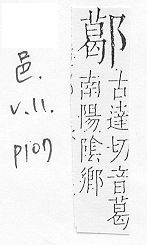 邑.
v.11.
p107
𨞛
古達切音葛
南陽陰鄉